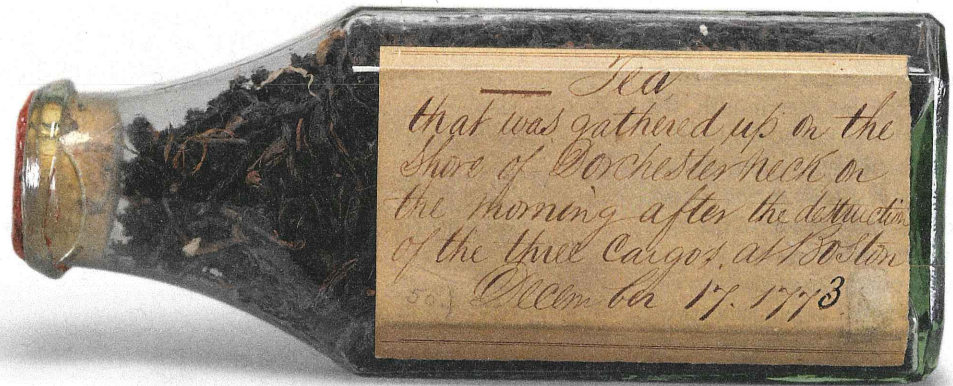 Tea
that was gathered up on the
Shore of Dorchester neck on
the morning after the destruction
of the three Cargos. at Boston
December 17. 1773